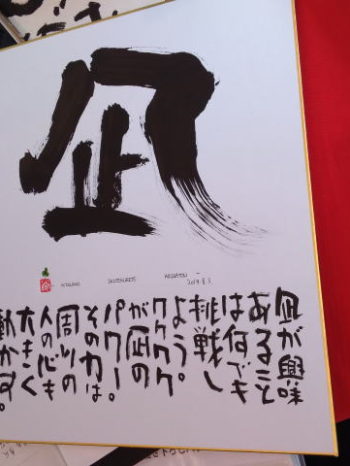 凪
凪が興味
あること
は何でも
挑戦し
よう。
ワクワク
が凪の
パワー。
その力は
周りの
人の心も
大きく
動かす。